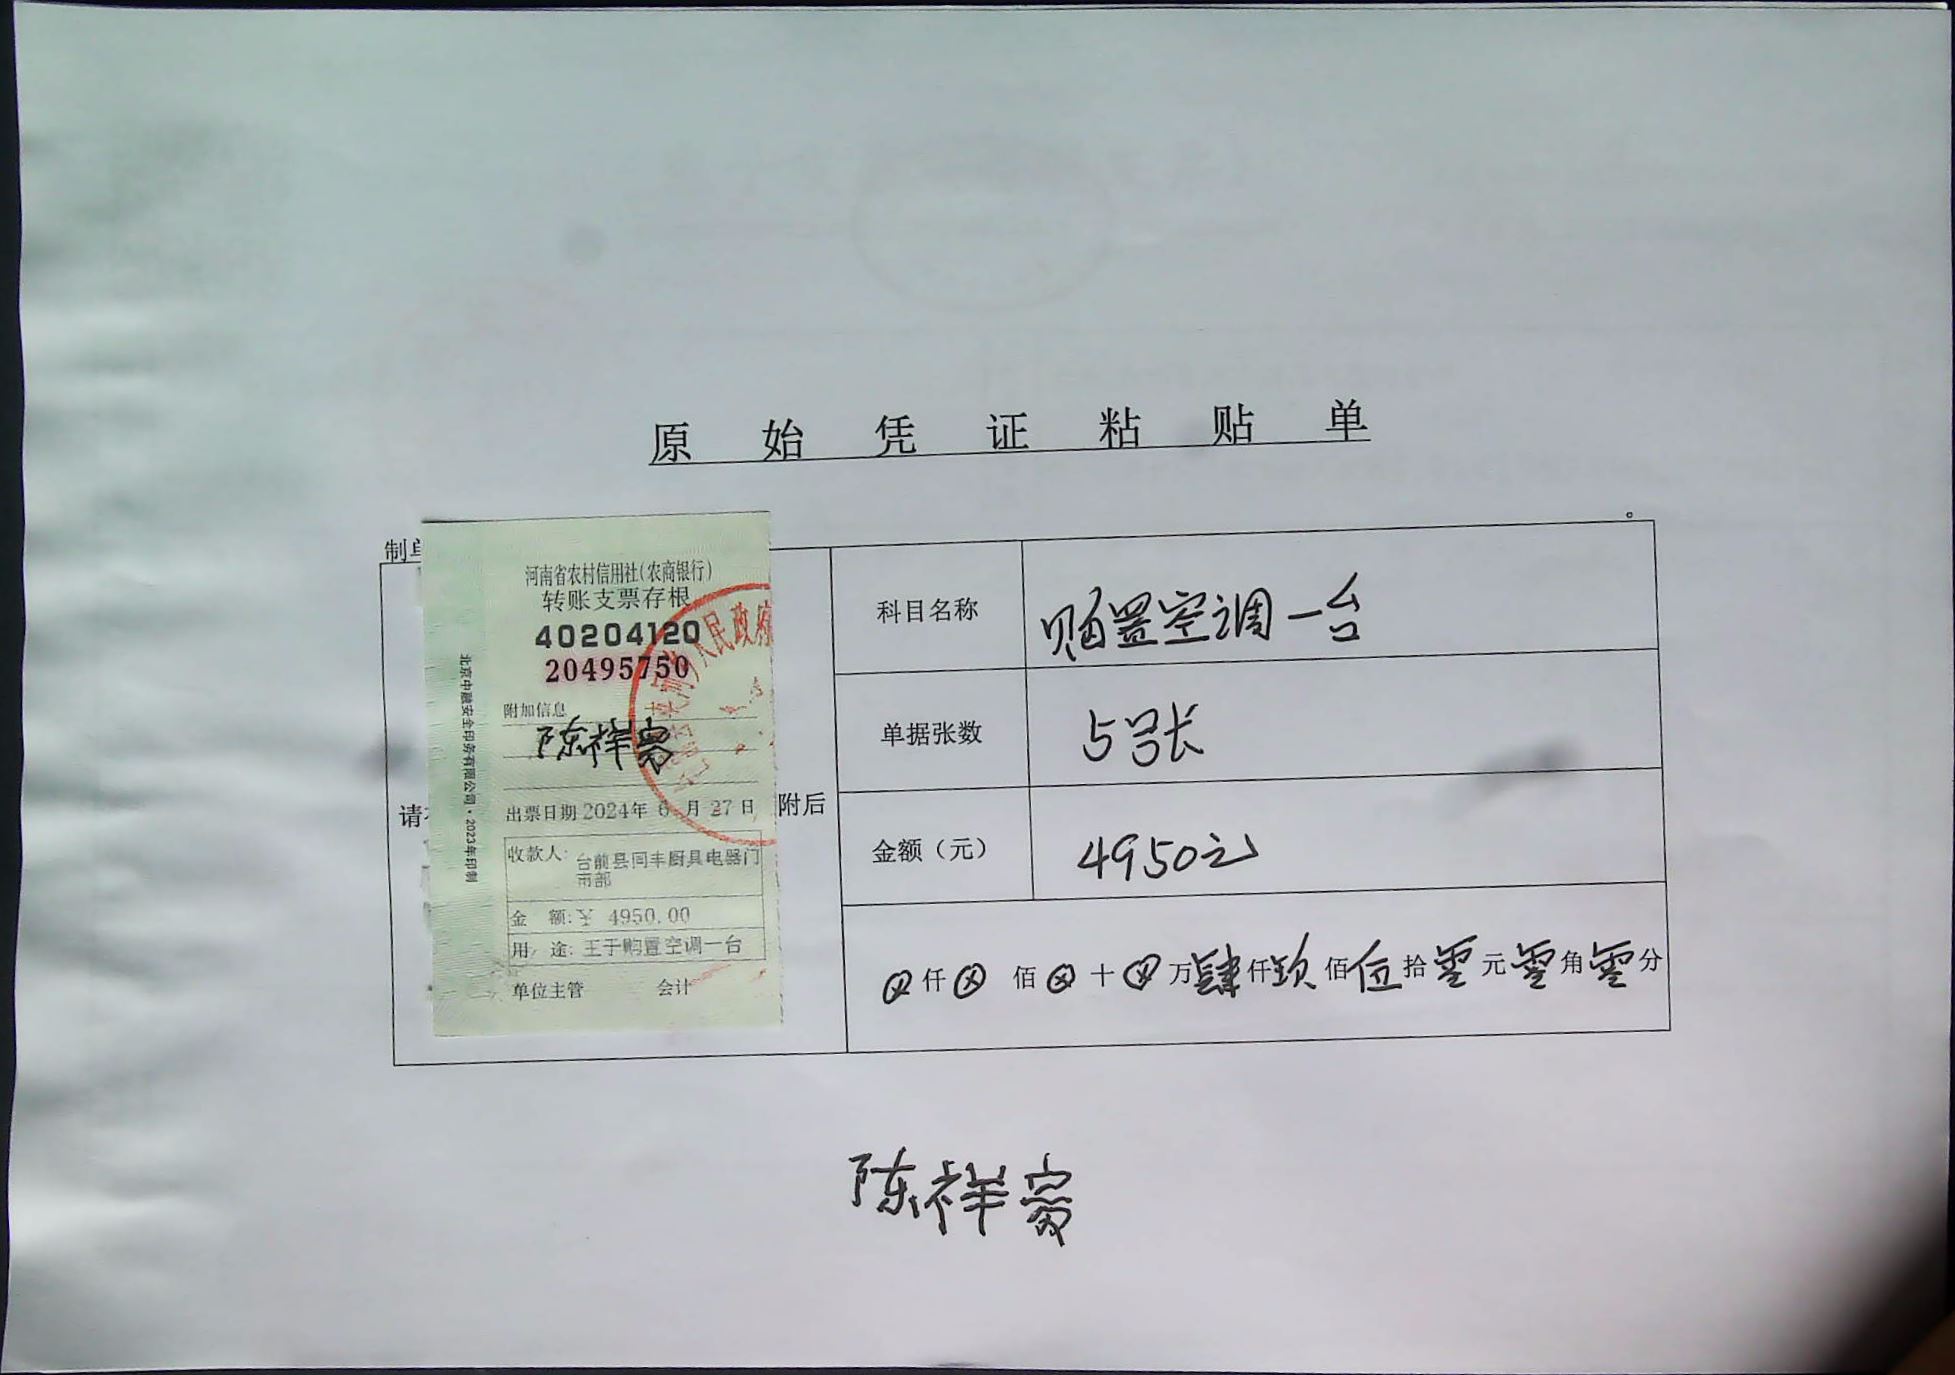 原始凭证粘贴单
制单
河南省农村信用社(农商银行)
转账支票存根
40204120
20495750
附加信息
陈祥富
出票日期 2024年 6 月 27 日
收款人: 台前县同丰厨具电器门
市部
金 额: ¥ 4950.00
用 途: 王于购置空调一台
单位主管 会计
北京中融安全印务有限公司·2023年印制
人民政府
请
附后
科目名称 购置空调一台
单据张数 5张
金额（元） 4950元
⊗仟⊗佰⊗十⊗万肆仟玖佰伍拾零元零角零分
陈祥富